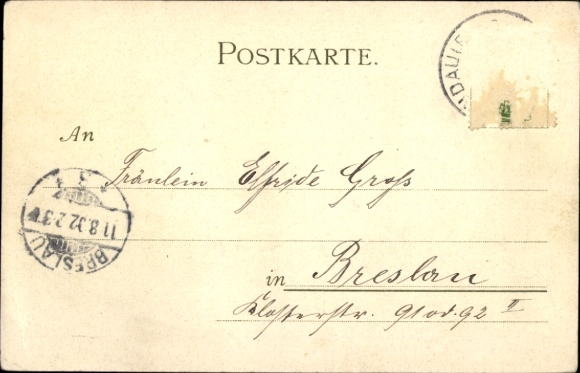 POSTKARTE.
An
Fräulein Elfride Gross
in Breslau
Klosterstr. 91 od. 92 II
BRESLAU
11.8.02.2-3